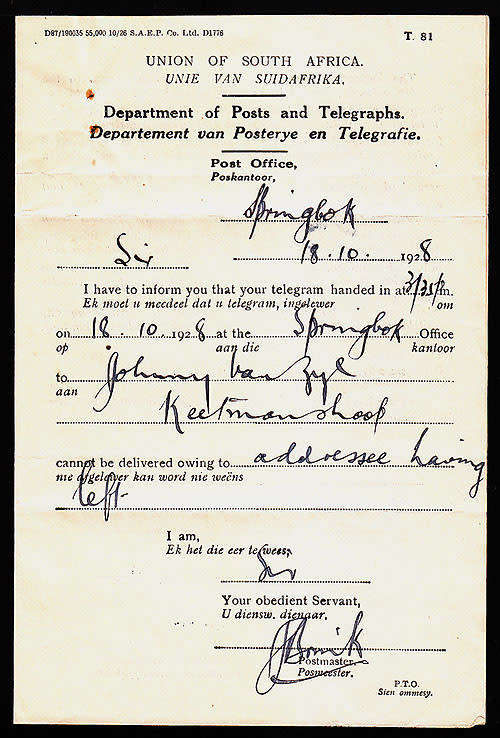 D87/190035 55,000 10/26 S.A.E.P. Co. Ltd. D1776
T. 81
UNION OF SOUTH AFRICA.
UNIE VAN SUIDAFRIKA.
Department of Posts and Telegraphs.
Departement van Posterye en Telegrafie.
Post Office,
Poskantoor,
Springbok
Sir 18.10. 1928
I have to inform you that your telegram handed in at m.
Ek moet u meedeel dat u telegram, ingelewer om
on 18.10.1928 at the Springbok Office
op aan die kantoor
to Johnny van Zyl
aan
Keetmanshoop
cannot be delivered owing to addressee having
nie afgelewer kan word nie weëns
left
I am,
Ek het die eer te wees,
Sir
Your obedient Servant,
U diensw. dienaar,
Postmaster.
Posmeester.
P.T.O.
Sien ommesy.